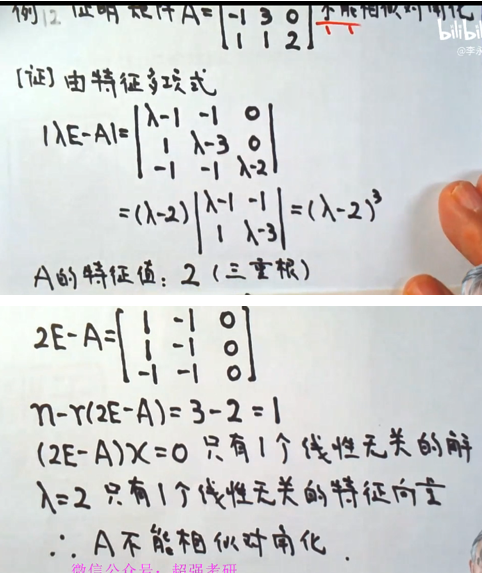 例12 证明矩阵A=[-1 3 0
1 1 2]不能相似对角化
bilibili
@李永
[证]由特征多项式
|λE-A|=|λ-1 -1 0
1 λ-3 0
-1 -1 λ-2|
=(λ-2)|λ-1 -1
1 λ-3|=(λ-2)³
A的特征值:2(三重根)
2E-A=[1 -1 0
1 -1 0
-1 -1 0]
n-r(2E-A)=3-2=1
(2E-A)x=0 只有1个线性无关的解
λ=2 只有1个线性无关的特征向量
∴ A不能相似对角化.
微信公众号:超强考研